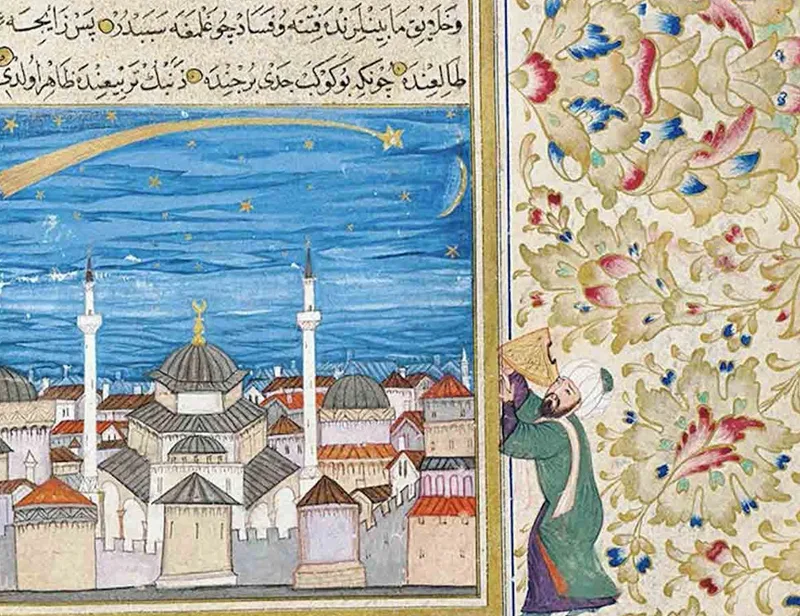 وخلایق مابینلرنده فتنه و فساد چوغلمغه سببدر پس زایجهٔ
طالعنده چونکه بو کوکب جدی برجنده ذنبك تربیعنده ظاهر اولدی